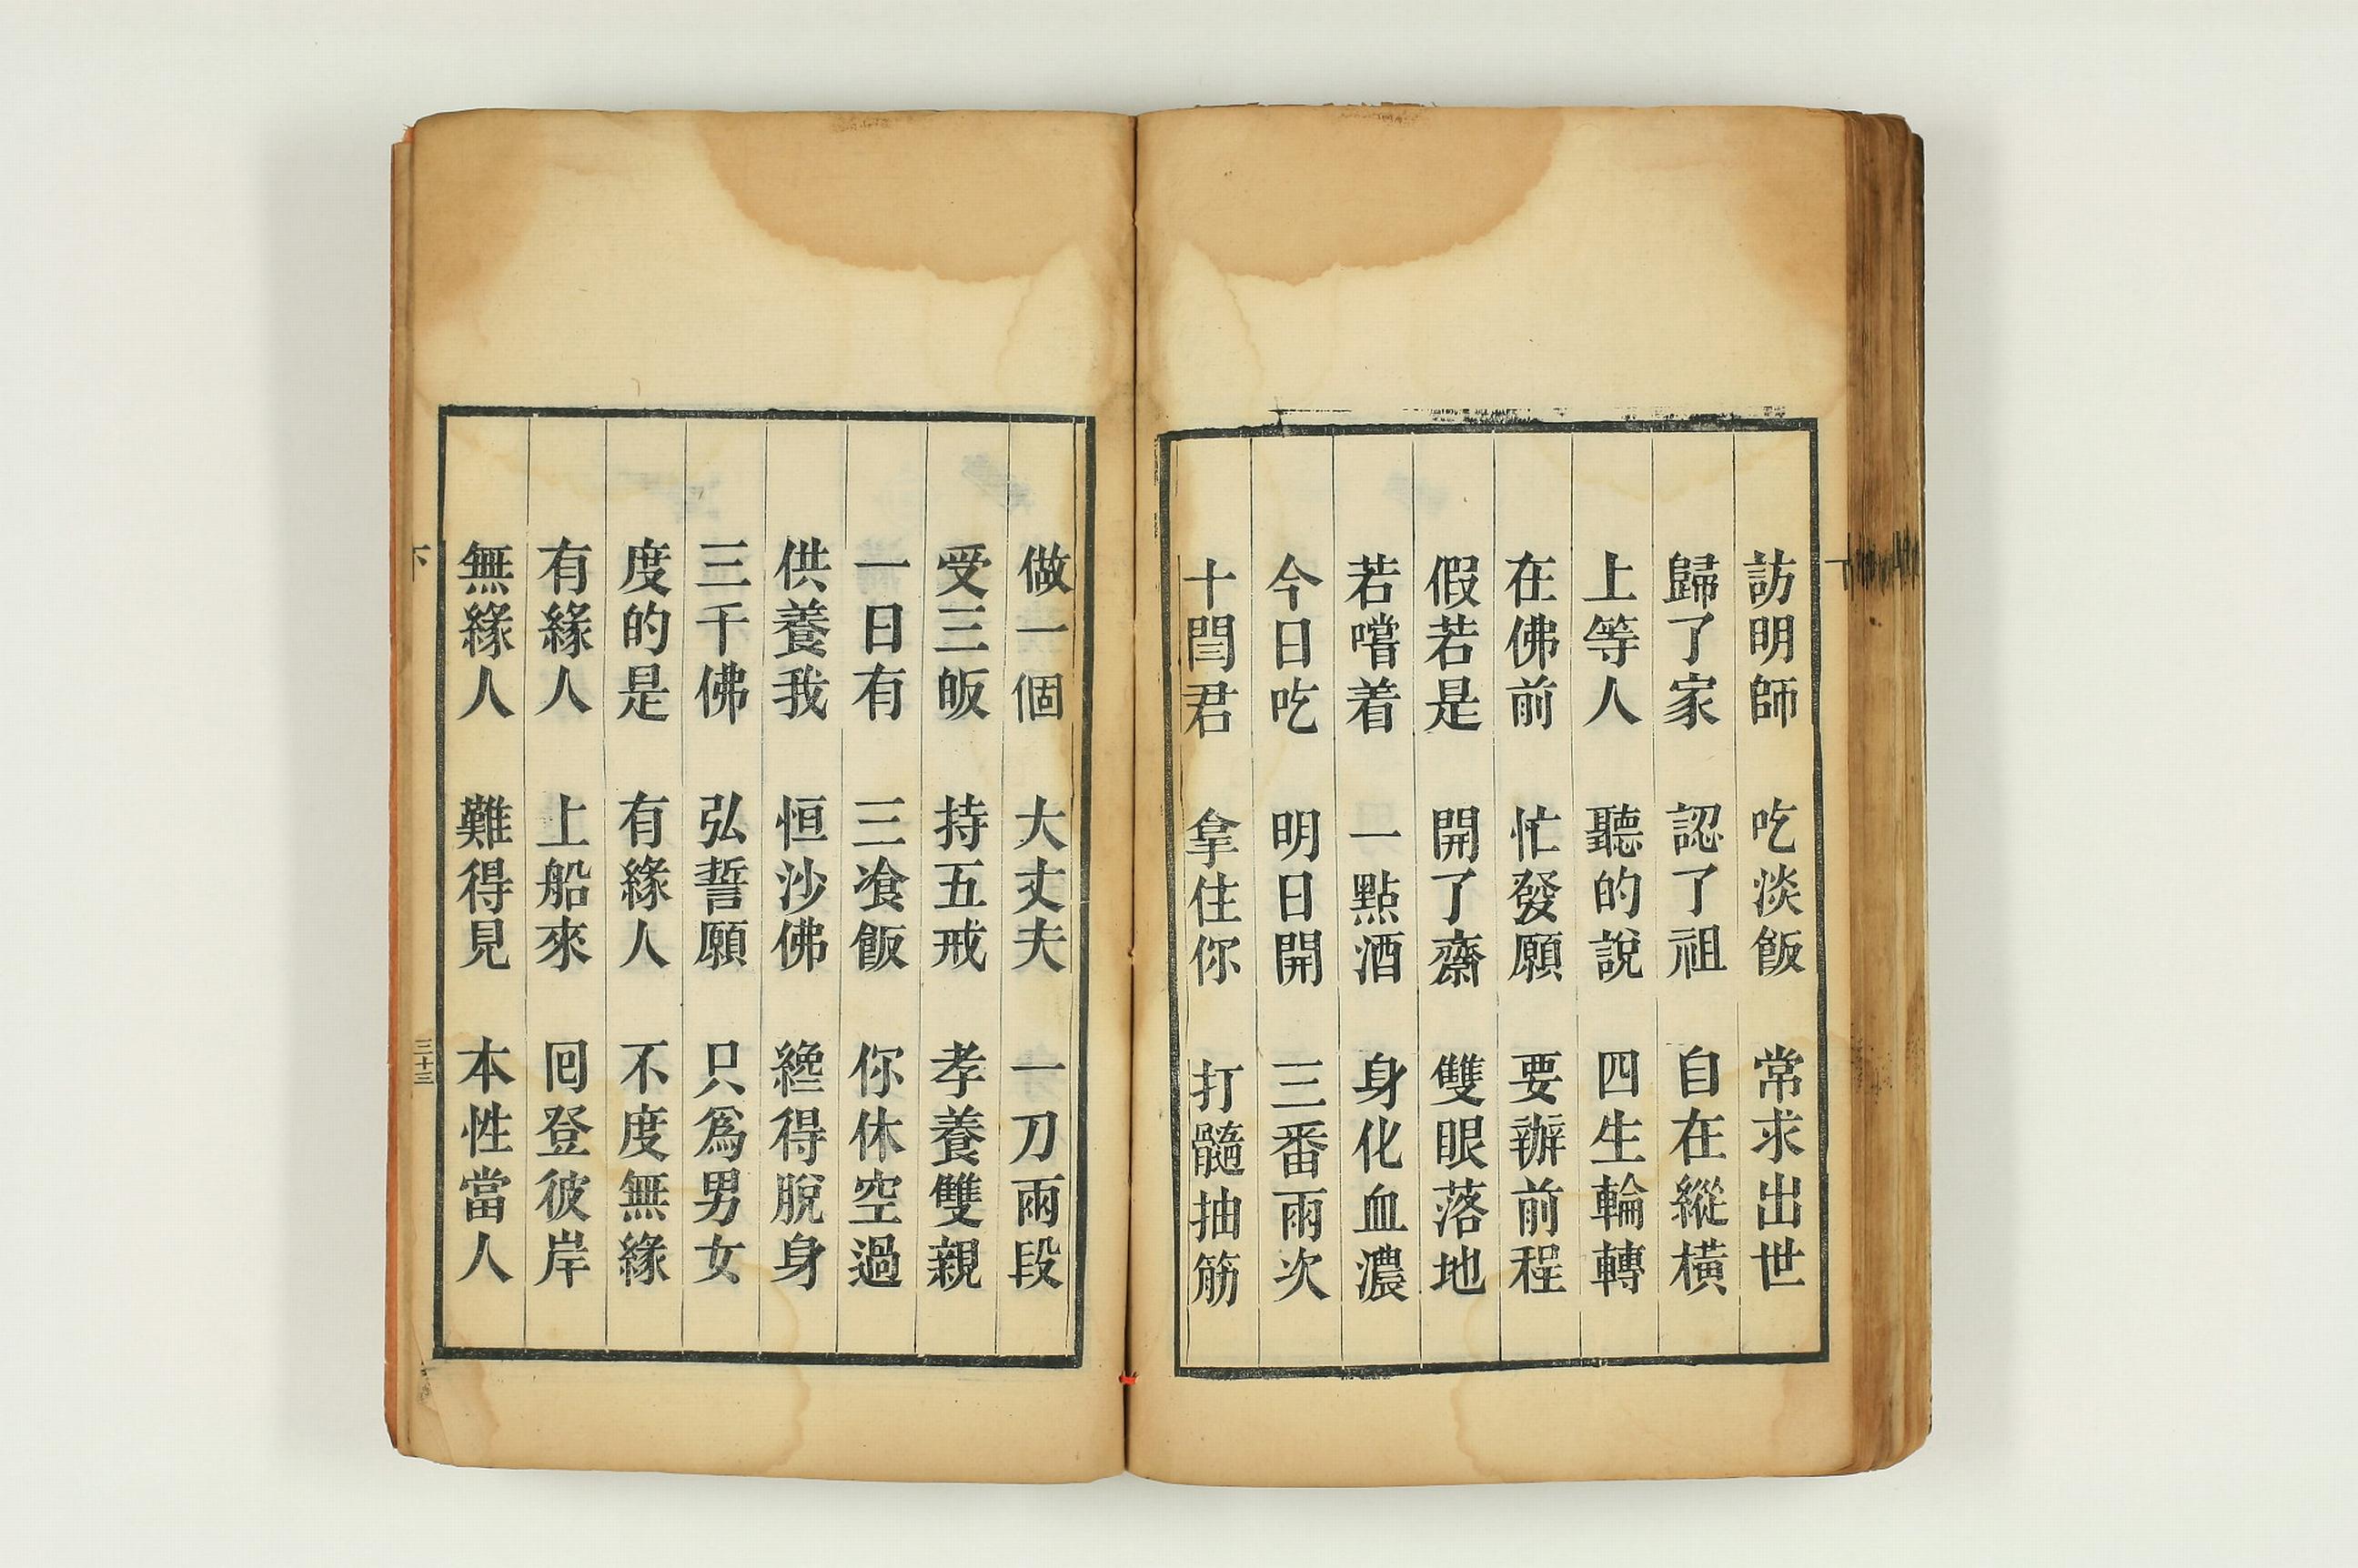 訪明師　吃淡飯　常求出世
歸了家　認了祖　自在縱橫
上等人　聽的說　四生輪轉
在佛前　忙發願　要辦前程
假若是　開了齋　雙眼落地
若嚐着　一點酒　身化血濃
今日吃　明日開　三番兩次
十閻君　拿住你　打髓抽筋
做一個　大丈夫　一刀兩段
受三皈　持五戒　孝養雙親
一日有　三飡飯　你休空過
供養我　恒沙佛　纔得脫身
三千佛　弘誓願　只爲男女
度的是　有緣人　不度無緣
有緣人　上船來　囘登彼岸
無緣人　難得見　本性當人
下　三十三